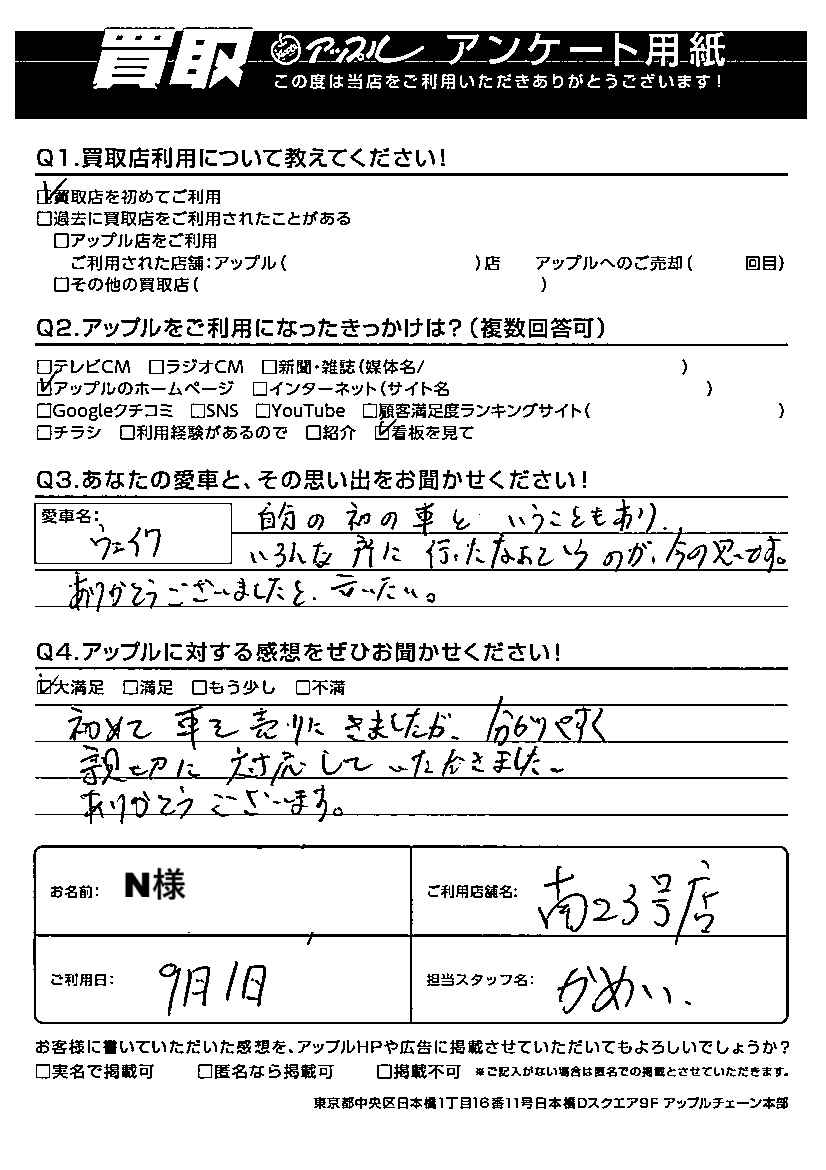 買取 アップル アンケート用紙
この度は当店をご利用いただきありがとうございます!
Q1.買取店利用について教えてください!
☑買取店を初めてご利用
□過去に買取店をご利用されたことがある
□アップル店をご利用
ご利用された店舗:アップル( )店 アップルへのご売却( 回目)
□その他の買取店( )
Q2.アップルをご利用になったきっかけは?(複数回答可)
□テレビCM □ラジオCM □新聞・雑誌(媒体名/ )
☑アップルのホームページ □インターネット(サイト名 )
□Googleクチコミ □SNS □YouTube □顧客満足度ランキングサイト( )
□チラシ □利用経験があるので □紹介 ☑看板を見て
Q3.あなたの愛車と、その思い出をお聞かせください!
愛車名: ウェイク
自分の初の車ということもあり、
いろんな所に行ったなぁというのが、今の思いです。
ありがとうございましたと、言いたい。
Q4.アップルに対する感想をぜひお聞かせください!
☑大満足 □満足 □もう少し □不満
初めて車を売りにきましたが、分かりやすく
親切に対応していただきました。
ありがとうございます。
お名前: N様
ご利用店舗名: 南23号店
ご利用日: 9月1日
担当スタッフ名: かめい、
お客様に書いていただいた感想を、アップルHPや広告に掲載させていただいてもよろしいでしょうか?
□実名で掲載可 □匿名なら掲載可 □掲載不可 ※ご記入がない場合は匿名での掲載とさせていただきます。
東京都中央区日本橋1丁目16番11号日本橋Dスクエア9F アップルチェーン本部